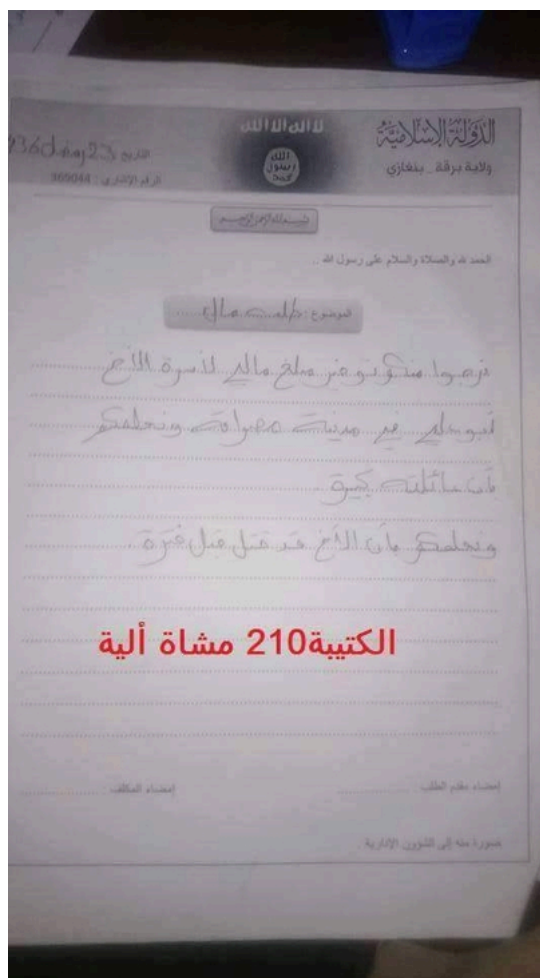 لا اله الا الله
الله
رسول
محمد
الدولة الإسلامية
ولاية برقة _ بنغازي
التاريخ 23 رمضان 1436
الرقم الإشاري : 369044
بسم الله الرحمن الرحيم
الحمد لله والصلاة والسلام على رسول الله ..
الموضوع : طلب مال
نرجوا منكم توفير مبلغ مالي لأسرة الأخ
أبو علي في مدينة مصراتة ونعلمكم
بأن عائلته كبيرة
ونعلمكم بأن الأخ قد قتل قبل فترة .
الكتيبة210 مشاة ألية
إمضاء مقدم الطلب
إمضاء المكلف
صورة منه إلى الشؤون الإدارية .